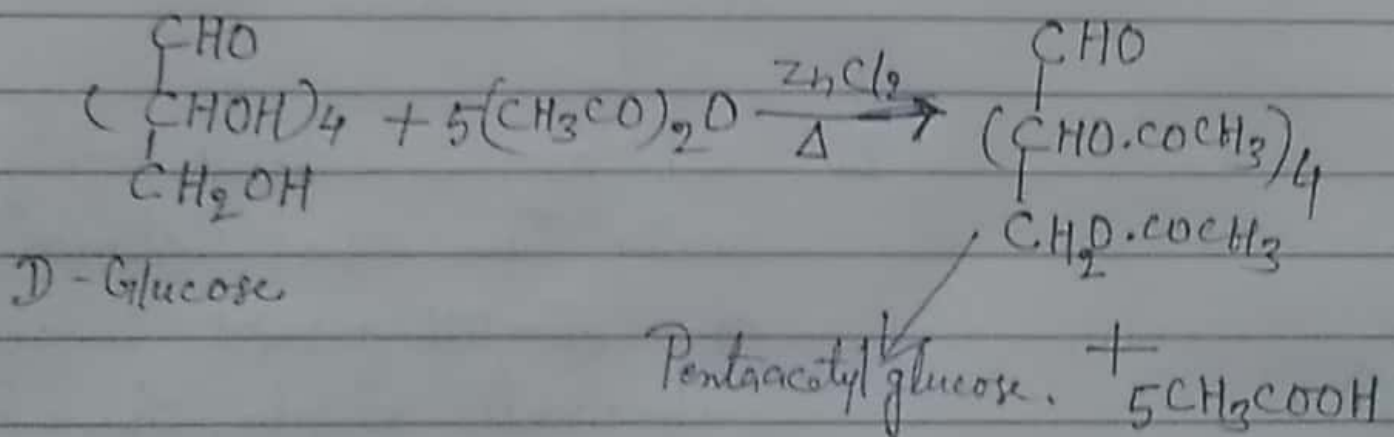 CHO CHO
(CHOH)4 + 5(CH3CO)2O ZnCl2 Δ → (CHO.COCH3)4
CH2OH CH2O.COCH3
D-Glucose
Pentaacetyl glucose. + 5CH3COOH